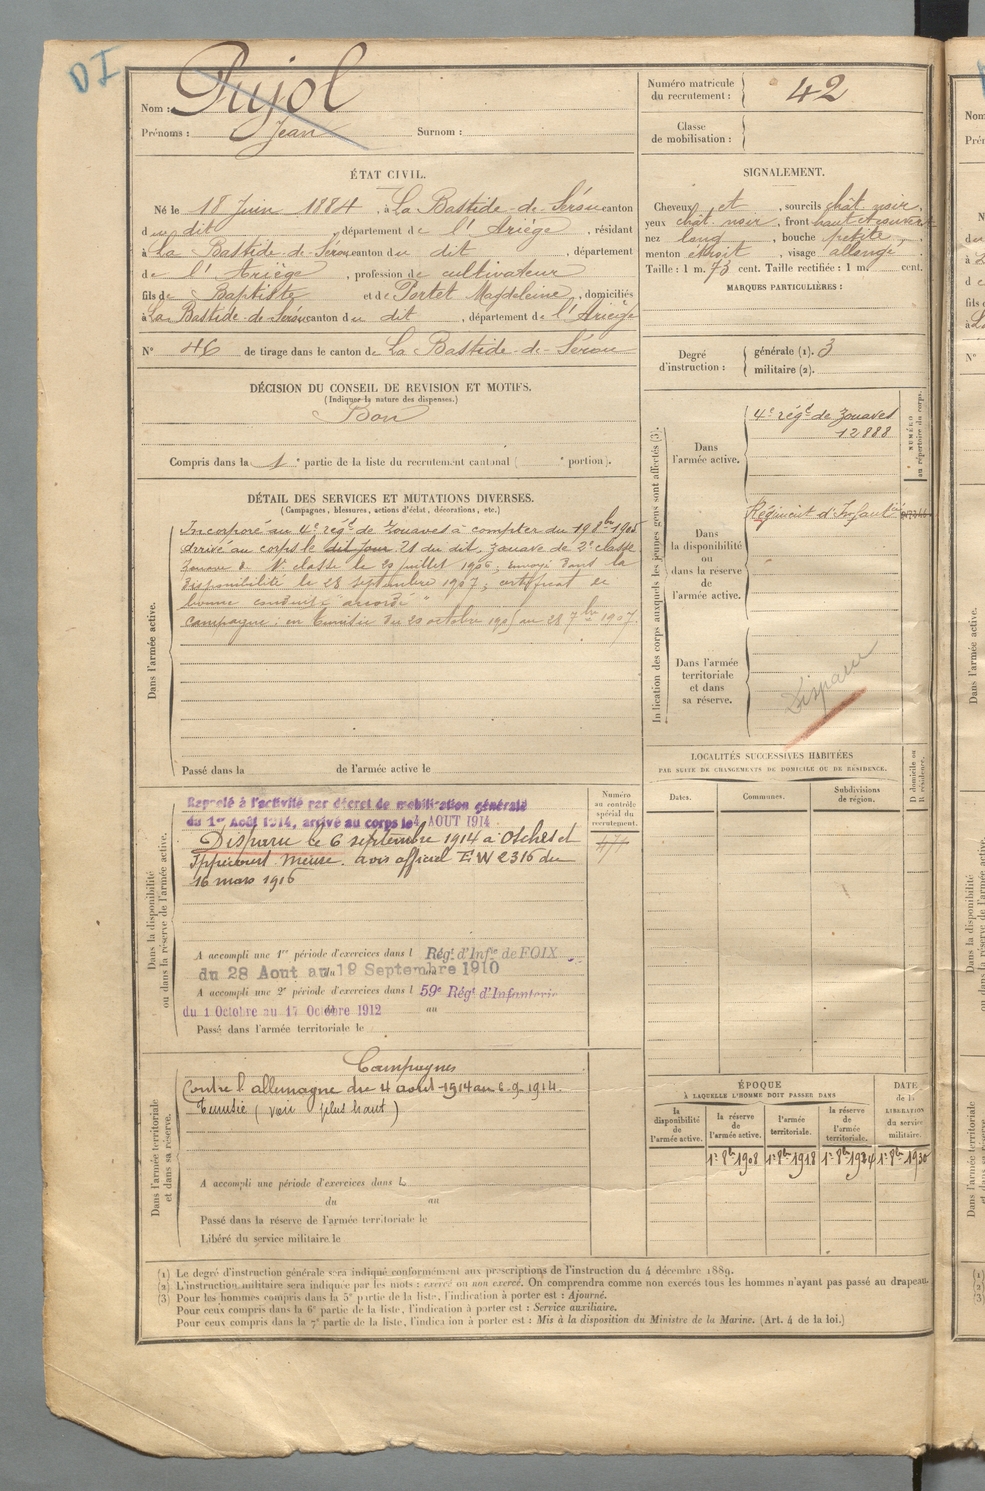 DI
Nom : Pujol
Prénoms : Jean Surnom :
Numéro matricule du recrutement : 42
Classe de mobilisation :
ÉTAT CIVIL.
Né le 18 Juin 1884, à La Bastide-de-Sérou canton
du dit, département de l'Ariège, résidant
à La Bastide-de-Sérou canton du dit, département
de l'Ariège, profession de cultivateur
fils de Baptiste et de Portet Magdeleine, domiciliés
à La Bastide-de-Sérou canton du dit, département de l'Ariège
N° 46 de tirage dans le canton de La Bastide-de-Sérou
SIGNALEMENT.
Cheveux et, sourcils chât. noir,
yeux chât. noir, front haut et ouvert,
nez long, bouche petite,
menton étroit, visage allongé.
Taille : 1 m. 73 cent. Taille rectifiée : 1 m. cent.
MARQUES PARTICULIÈRES :
Degré d'instruction : générale (1). 3
militaire (2).
DÉCISION DU CONSEIL DE REVISION ET MOTIFS.
(Indiquer la nature des dispenses.)
Bon
Compris dans la 1e partie de la liste du recrutement cantonal ( e portion).
DÉTAIL DES SERVICES ET MUTATIONS DIVERSES.
(Campagnes, blessures, actions d'éclat, décorations, etc.)
Dans l'armée active.
Incorporé au 4e régt de Zouaves à compter du 19 8bre 1905
arrivé au corps le dit jour 21 du dit, zouave de 2e classe
zouave de 1e classe le 20 juillet 1906, envoyé dans la
disponibilité le 28 septembre 1907, certificat de
bonne conduite "accordé"
campagne : en Tunisie du 20 octobre 1905 au 28 7bre 1907.
Passé dans la de l'armée active le
Indication des corps auxquels les jeunes gens sont affectés (3).
NUMÉRO au répertoire du corps.
Dans l'armée active.
4e régt de Zouaves
12888
Dans la disponibilité ou dans la réserve de l'armée active.
Régiment d'Infanterie
Dans l'armée territoriale et dans sa réserve.
Disparu
LOCALITÉS SUCCESSIVES HABITÉES
PAR SUITE DE CHANGEMENTS DE DOMICILE OU DE RÉSIDENCE.
Dates. Communes. Subdivisions de région. D domicile ou R résidence.
Dans la disponibilité ou dans la réserve de l'armée active.
Numéro au contrôle spécial du recrutement.
Rappelé à l'activité par décret de mobilisation générale
du 1er Août 1914, arrivé au corps le 4 AOUT 1914
Disparu le 6 septembre 1914 à Osches et
Ippécourt Meuse. Avis officiel E.W 2316 du
16 mars 1916
A accompli une 1re période d'exercices dans l Régt d'Infie de FOIX
du 28 Aout au 19 Septembre 1910
A accompli une 2e période d'exercices dans l 59e Régt d'Infanterie
du 1 Octobre au 17 Octobre 1912 au
Passé dans l'armée territoriale le
Dans l'armée territoriale et dans sa réserve.
Campagnes
Contre l'allemagne du 4 août 1914 au 6-9-1914.
Tunisie (voir plus haut)
A accompli une période d'exercices dans L
du au
Passé dans la réserve de l'armée territoriale le
Libéré du service militaire le
ÉPOQUE
À LAQUELLE L'HOMME DOIT PASSER DANS
la disponibilité de l'armée active.
la réserve de l'armée active.
l'armée territoriale.
la réserve de l'armée territoriale.
DATE de la LIBÉRATION du service militaire.
1er 8bre 1908 1er 8bre 1918 1er 8bre 1924 1er 8bre 1930
(1) Le degré d'instruction générale sera indiqué conformément aux prescriptions de l'instruction du 4 décembre 1889.
(2) L'instruction militaire sera indiquée par les mots : exercé ou non exercé. On comprendra comme non exercés tous les hommes n'ayant pas passé au drapeau.
(3) Pour les hommes compris dans la 5e partie de la liste, l'indication à porter est : Ajourné.
Pour ceux compris dans la 6e partie de la liste, l'indication à porter est : Service auxiliaire.
Pour ceux compris dans la 7e partie de la liste, l'indication à porter est : Mis à la disposition du Ministre de la Marine. (Art. 4 de la loi.)